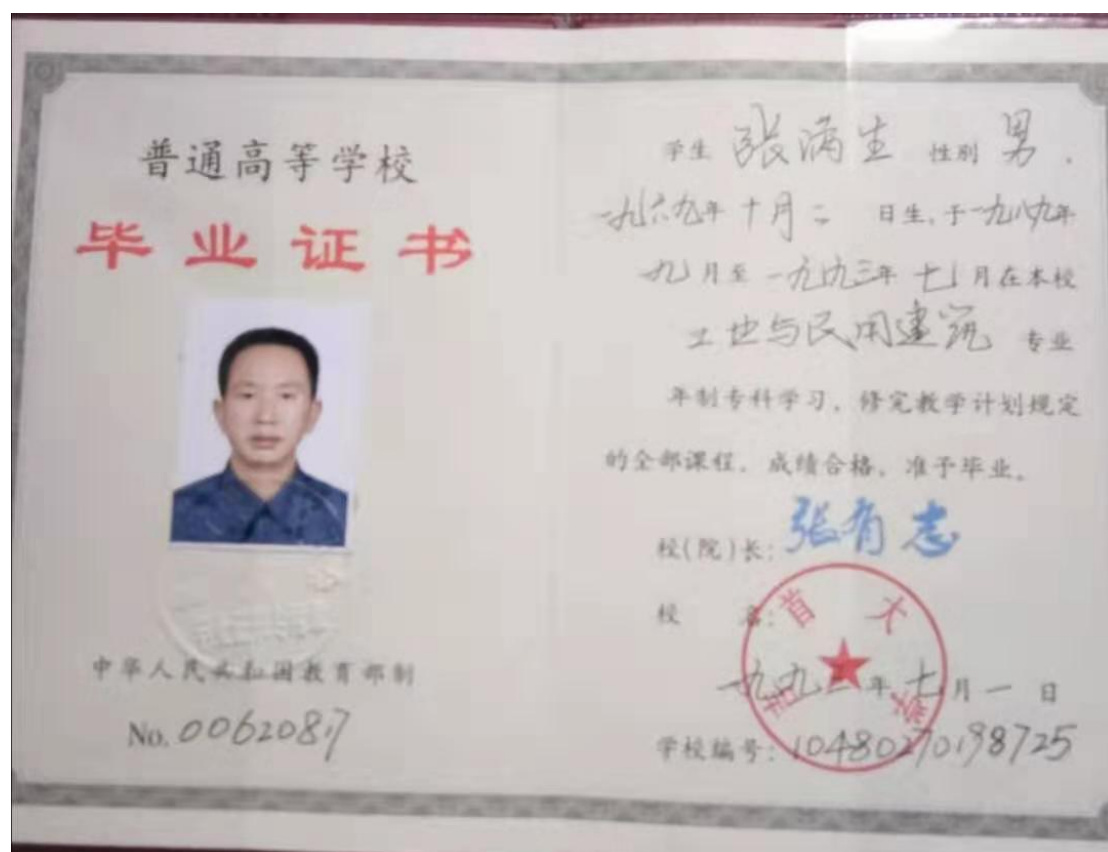 普通高等学校
毕业证书
中华人民共和国教育部制
No. 00620817
学生 张满生 性别 男 ,
一九六九年 十月 二 日生,于一九八九年
九 月至 一九九三年 七 月在本校
工业与民用建筑 专业
年制专科学习,修完教学计划规定
的全部课程,成绩合格,准予毕业。
校(院)长: 张有志
校 名:
吉首大学
年 七 月 一 日
学校编号: 10480270198725